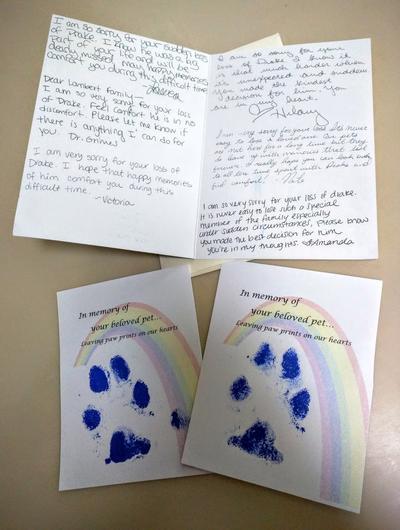 I am so sorry for your sudden loss
of Drake. I know he was a big
part of your life and will be
dearly missed. May happy memories
comfort you during this difficult time.
Dear Lambert family-
I am so very sorry for your loss
of Drake. Feel comfort he is in no
discomfort. Please let me know if
there is anything I can do for
you. Dr. Grimes
I am very sorry for your loss of
Drake. I hope that happy memories
of him comfort you during this
difficult time.
~Victoria
I am so sorry for your
loss of Drake I know it
is that much harder when
it's unexpected and sudden.
You made the kindest
decision for him. You
are in my heart.
Hilary
I am very sorry for your loss. It's never
easy to lose a loved one. Our pets
are not here for a long time but they
leave us with memories that last
forever. I really hope you can look
to all the time spent with Drake and
find comfort.
I am so very sorry for your loss of drake.
It is never easy to lose such a special
member of the family especially
under sudden circumstances, Please know
you made the best decision for him.
You're in my thoughts. Amanda
In memory of
your beloved pet...
Leaving paw prints on our hearts
In memory of
your beloved pet...
Leaving paw prints on our hearts